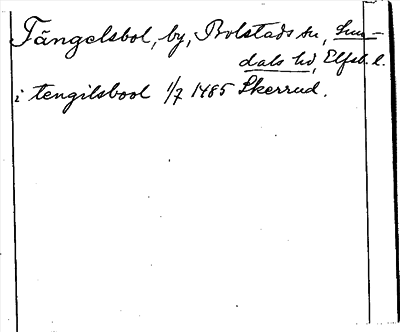 Tängelsbol, by, Bolstads sn, Sun-
dals hd, Elfsb. l.
i tengilsbool 1/7 1485 Skerrud.